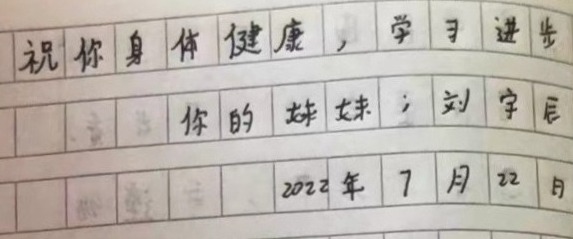 祝你身体健康，学习进步
你的妹妹；刘宇辰
2022年7月22日